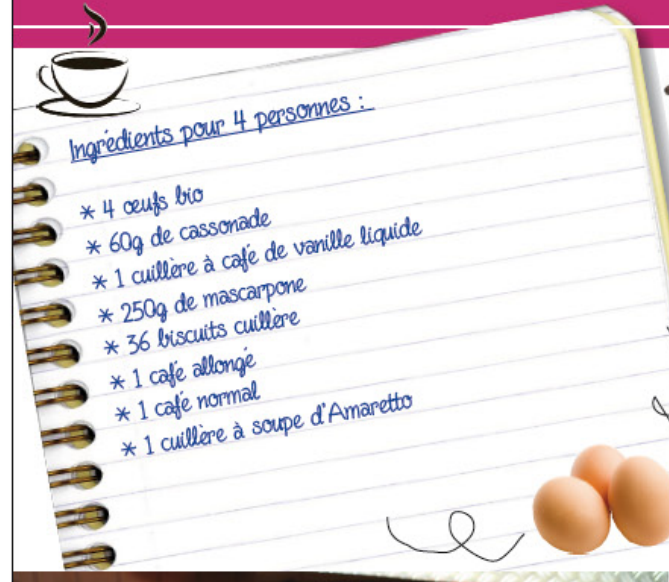 Ingrédients pour 4 personnes :
* 4 œufs bio
* 60g de cassonade
* 1 cuillère à café de vanille liquide
* 250g de mascarpone
* 36 biscuits cuillère
* 1 café allongé
* 1 café normal
* 1 cuillère à soupe d'Amaretto